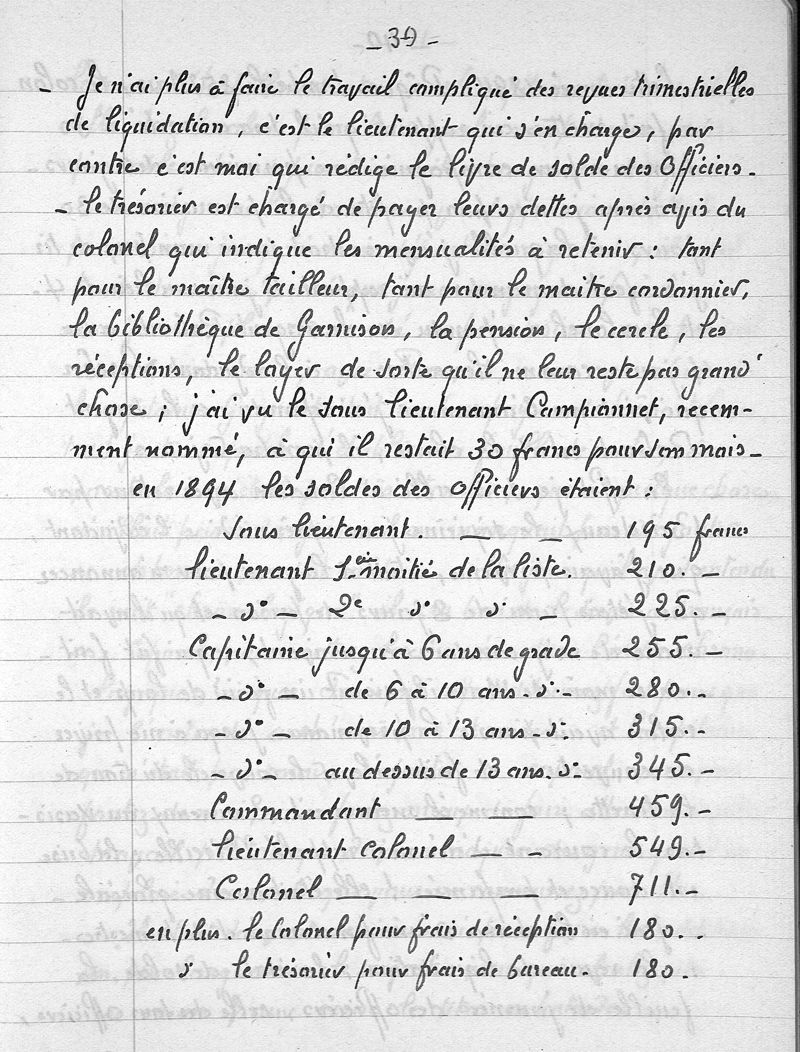 - 39 -
- Je n'ai plus à faire le travail compliqué des revues trimestrielles
de liquidation, c'est le lieutenant qui s'en charge, par
contre c'est moi qui rédige le livre de solde des Officiers.
- le trésorier est chargé de payer leurs dettes après avis du
colonel qui indique les mensualités à retenir : tant
pour le maître tailleur, tant pour le maitre cordonnier,
la bibliothèque de Garnison, la pension, le cercle, les
réceptions, le loyer de sorte qu'il ne leur reste pas grand'
chose ; j'ai vu le sous lieutenant Campionnet, recem-
ment nommé, à qui il restait 30 francs pour son mois -
en 1894 les soldes des Officiers étaient :
Sous lieutenant. — — 195 francs
lieutenant 1ère moitié de la liste. 210. -
- d° - 2e d° d° - 225. -
Capitaine jusqu'à 6 ans de grade 255. -
- d° - de 6 à 10 ans - d° - 280. -
- d° - de 10 à 13 ans - d° 315. -
- d° - au dessus de 13 ans. d° 345. -
Commandant — — 459. -
lieutenant Colonel — - 549. -
Colonel — — — 711. -
en plus. le Colonel pour frais de réception 180. .
d° le trésorier pour frais de bureau - 180.